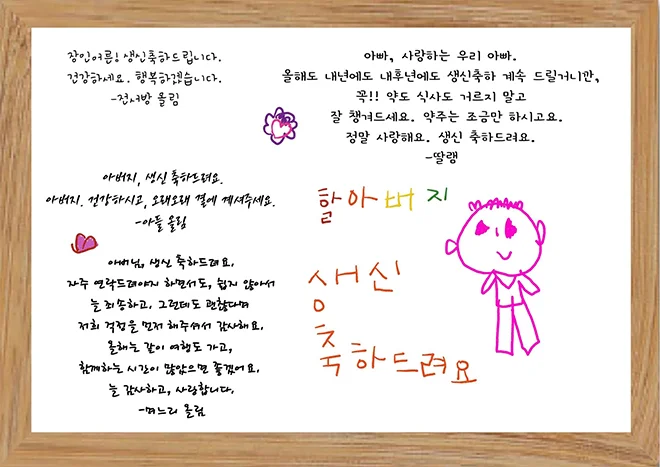 장인어른! 생신축하드립니다.
건강하세요. 행복하겠습니다.
-전서방 올림
아빠, 사랑하는 우리 아빠.
올해도 내년에도 내후년에도 생신축하 계속 드릴거니깐,
꼭!! 약도 식사도 거르지 말고
잘 챙겨드세요. 약주는 조금만 하시고요.
정말 사랑해요. 생신 축하드려요.
-딸램
아버지, 생신 축하드려요.
아버지. 건강하시고, 오래오래 곁에 계셔주세요.
-아들 올림
아버님, 생신 축하드려요.
자주 연락드려야지 하면서도, 쉽지 않아서
늘 죄송하고. 그런데도 괜찮다며
저희 걱정을 먼저 해주셔서 감사해요.
올해는 같이 여행도 가고,
함께하는 시간이 많았으면 좋겠어요.
늘 감사하고, 사랑합니다.
-며느리 올림
할아버지
생신
축하드려요